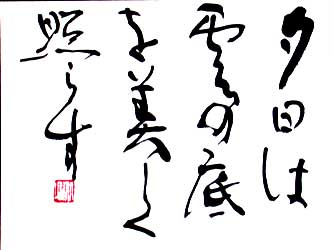 夕日は
雲の底
を美しく
照らす